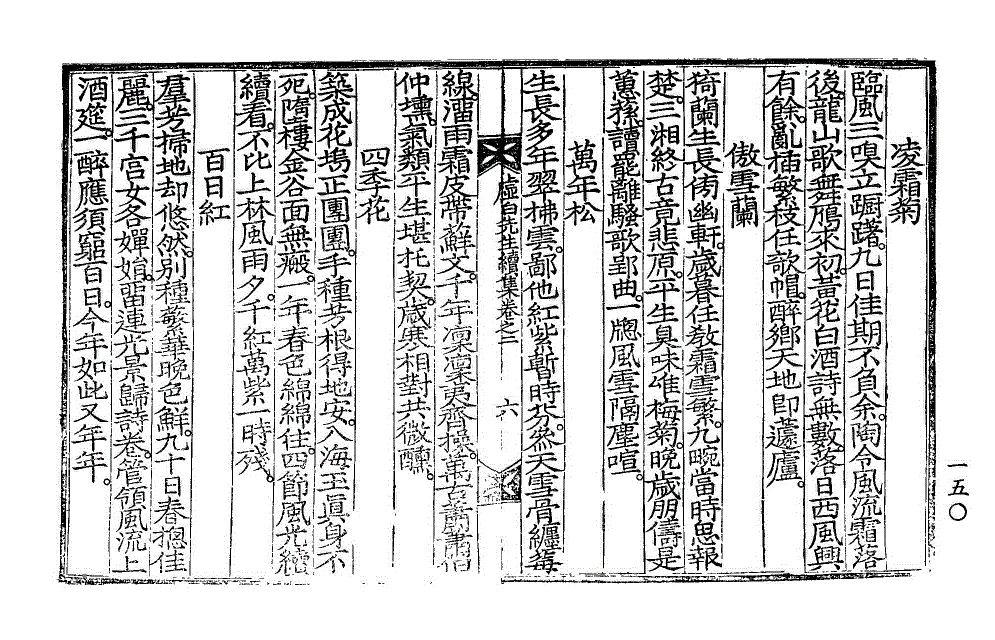 凌霜菊
臨風三嗅立踟躇。九日佳期不負余。陶令風流霜落
後。龍山歌舞鴈來初。黃花白酒詩無數。落日西風興
有餘。亂插繁枝任欹帽。醉鄉天地卽蘧廬。
傲雪蘭
猗蘭生長傍幽軒。歲暮任敎霜雪繁。九畹當時思報
楚。三湘終古竟悲原。平生臭味唯梅菊。晩歲朋儔是
蕙蓀。讀罷離騷歌郢曲。一牕風雪隔塵喧。
萬年松
生長多年翠拂雲。鄙他紅紫暫時芬。參天雪骨纏莓
虛白先生續集卷之三
六
線。溜雨霜皮帶蘚文。千年凜凜夷齊操。萬古蕭蕭伯
仲壎。氣類平生堪托契。歲寒相對共微醺。
四季花
築成花塢正團團。手種芳根得地安。入海玉眞身不
死。墮樓金谷面無瘢。一年春色綿綿住。四節風光續
續看。不比上林風雨夕。千紅萬紫一時殘。
百日紅
羣芳掃地却悠然。別種繁華晩色鮮。九十日春摠佳
麗。三千宮女各嬋娟。留連光景歸詩卷。管領風流上
酒筵。一醉應須韶百日。今年如此又年年。
一五〇